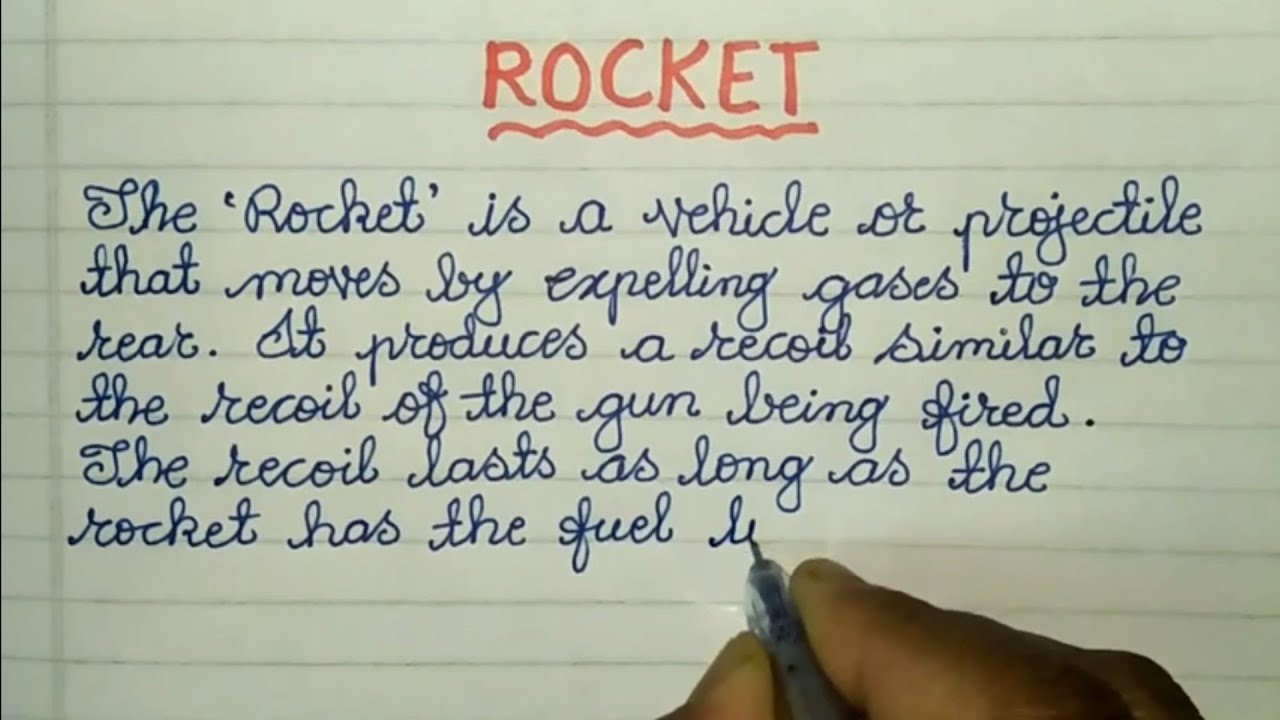 ROCKET
The 'Rocket' is a vehicle or projectile
that moves by expelling gases to the
rear. It produces a recoil similar to
the recoil of the gun being fired.
The recoil lasts as long as the
rocket has the fuel